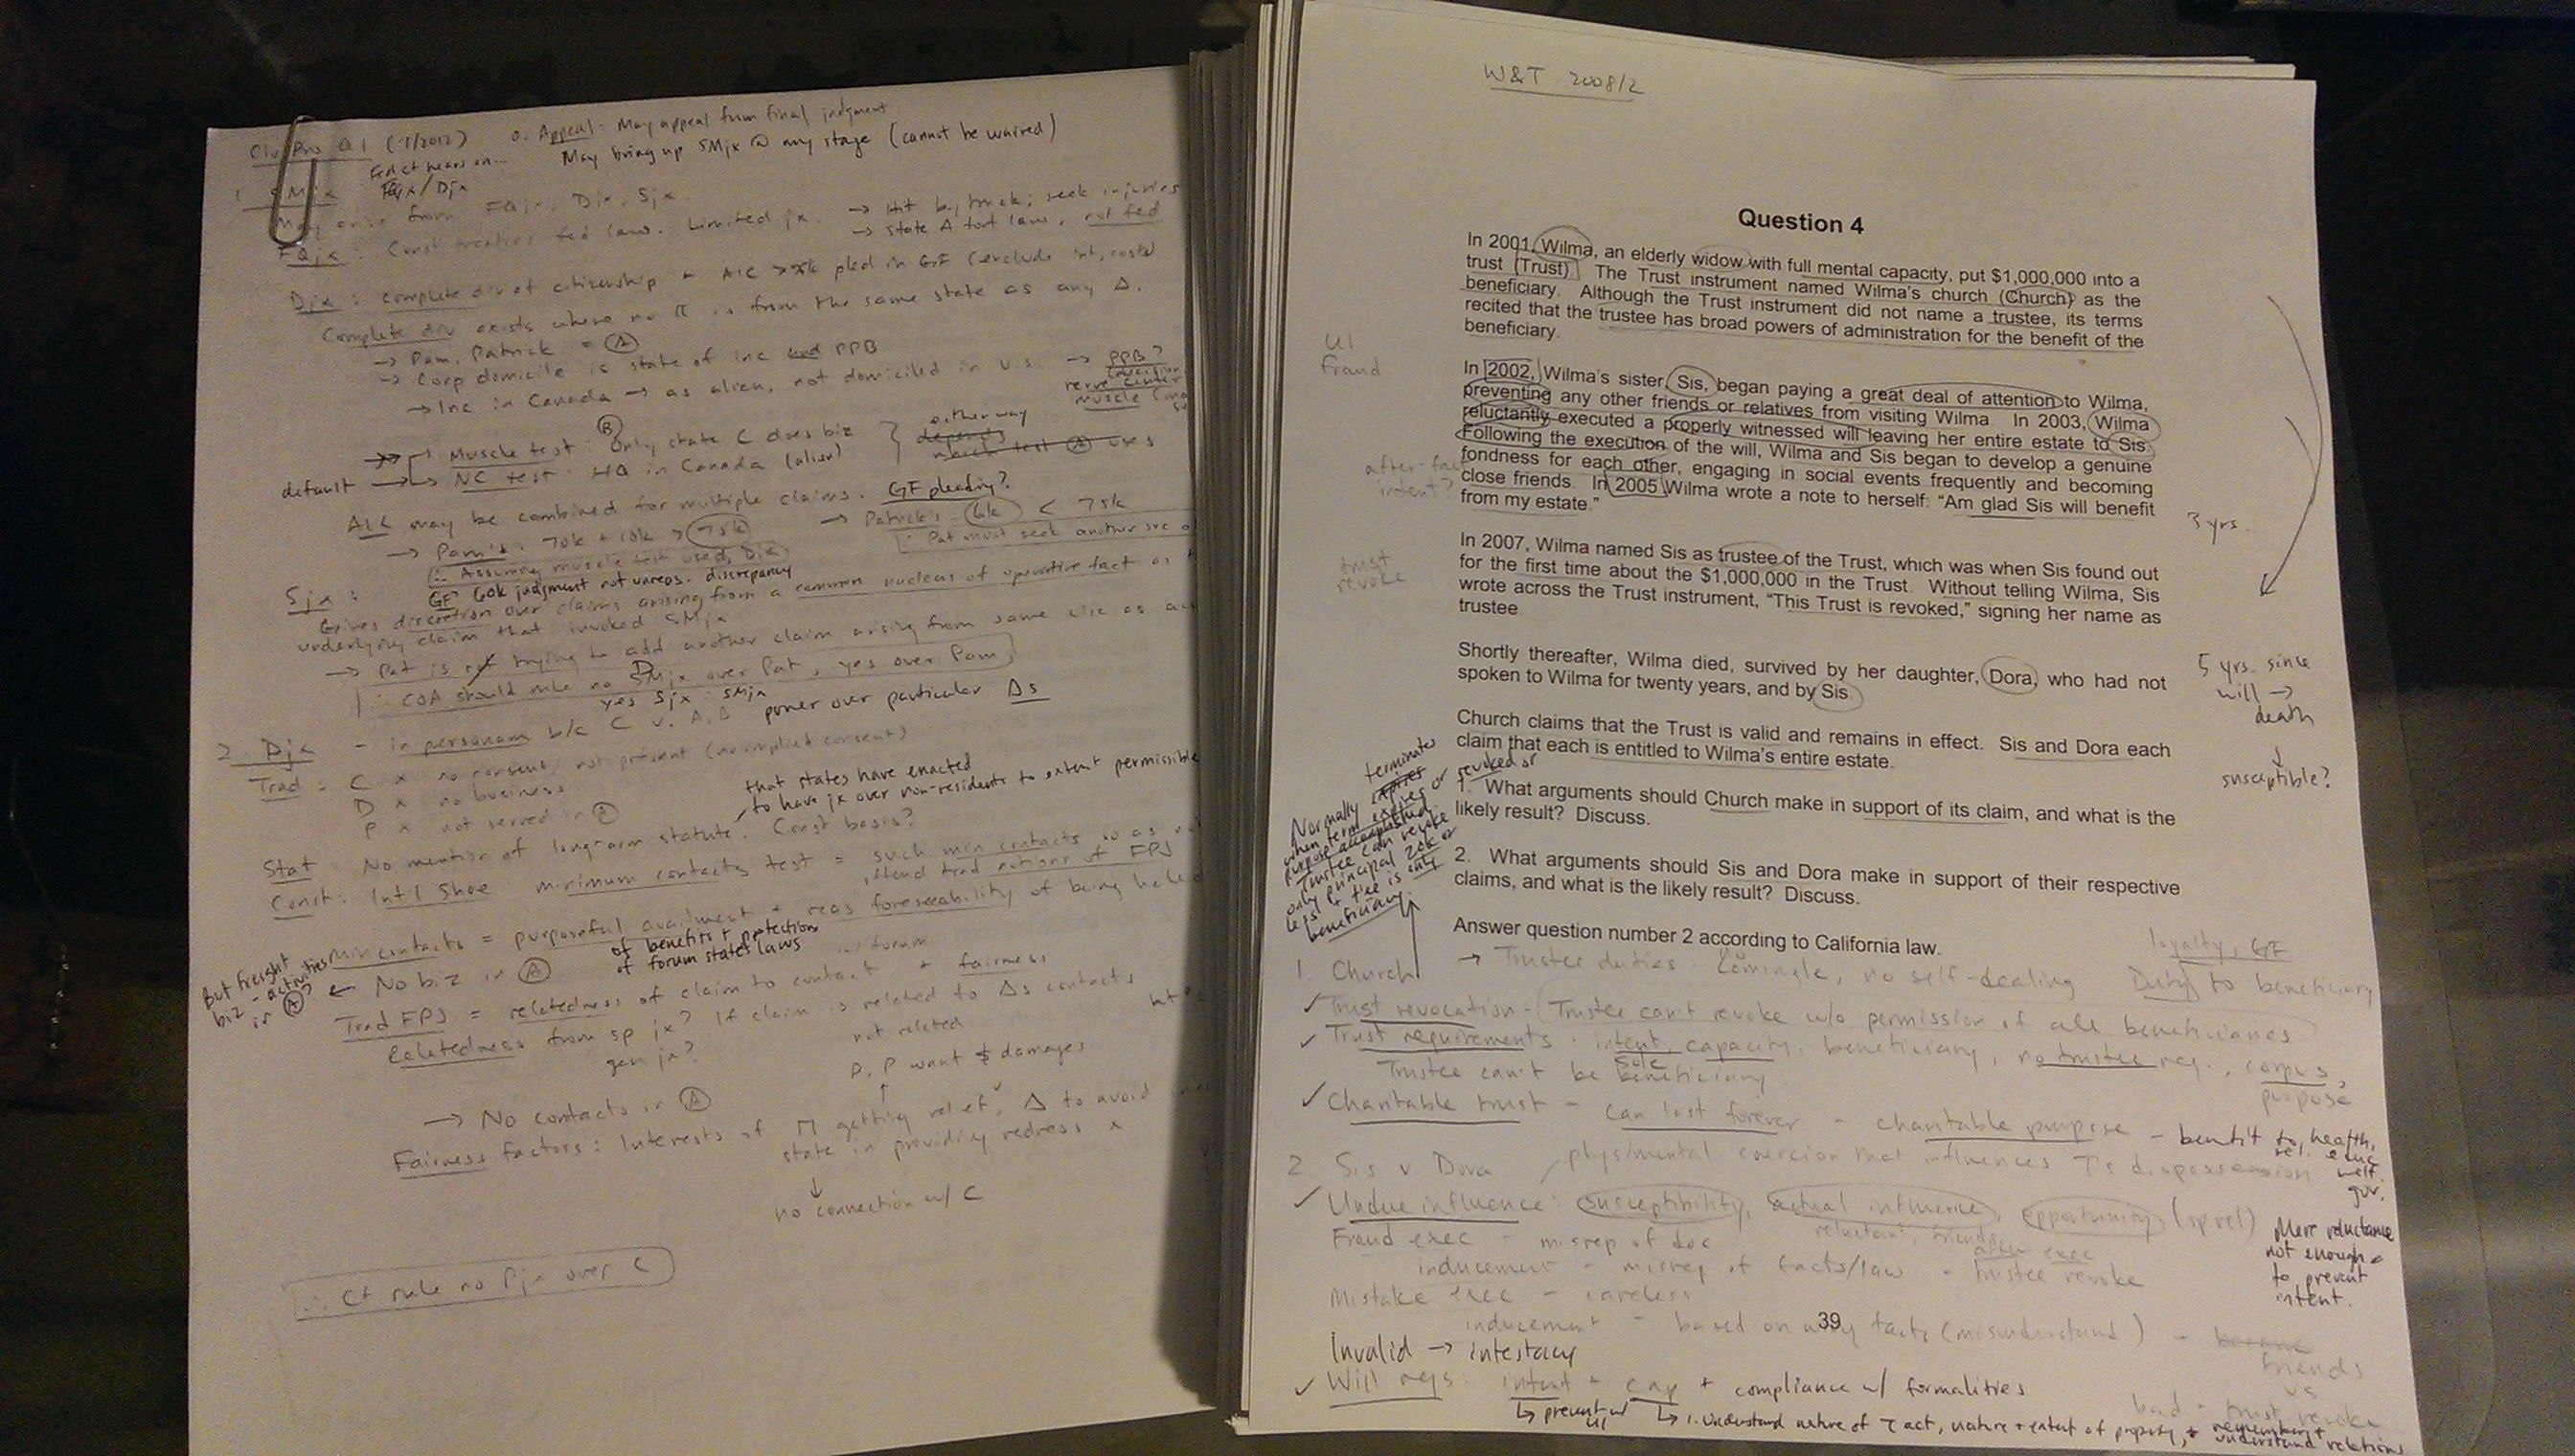 Civ Pro Q1 (7/2012)
0. Appeal: May appeal from final judgment
May bring up SMjx @ any stage (cannot be waived)
Fed ct hears on...
FQjx/Djx
1. SMjx
May arise from FQjx, Djx, Sjx.
FQjx: Const treaties fed law. Limited jx.
→ Hit by truck; seek injuries
→ state A tort law, not fed
Djx: complete div of citizenship + AIC >75k pled in GF (exclude int, costs)
Complete div exists where no π is from the same state as any Δ.
→ Pam, Patrick = A
→ Corp domicile is state of inc and PPB
→ Inc in Canada → as alien, not domiciled in U.S. → PPB?
nerve center
muscle
Muscle test: Only state C does biz
B
default → NC test: HQ in Canada (alien)
either way
depends
which test A uses
AIC may be combined for multiple claims. GF pleading?
→ Pam's: 70k + 10k > 75k
→ Patrick's 6k < 75k
∴ Assuming muscle test used, Djx
∴ Pat must seek another src
GF? 60k judgment not unreas. discrepancy
Sjx:
Gives discretion over claims arising from a common nucleus of operative fact as
underlying claim that invoked SMjx
→ Pat is not trying to add another claim arising from same
∴ COA should rule no SMjx over Pat, yes over Pam
yes Sjx ∴ SMjx
2. Pjx - in personam b/c C v. A, B power over particular Δs
Trad: C x no consent, not present (no implied consent)
D x no business
P x not served in A
that states have enacted
to have jx over non-residents to extent permissible
Stat: No mention of long-arm statute. Const basis?
Const: Int'l Shoe minimum contacts test = such min contacts so as
offend trad notions of FPJ
Min contacts = purposeful availment + reas foreseeability of being haled
of benefits + protection
of forum state's laws
But freight
biz - activities
in A?
← No biz in A
Trad FPJ = relatedness of claim to contact w/ forum + fairness
Relatedness from sp jx? If claim is related to Δs contacts
gen jx?
not related
P, P want $ damages
→ No contacts in A
Fairness factors: Interests of π getting relief, Δ to avoid
state in providing redress x
no connection w/ C
∴ Ct rule no Pjx over C
W&T 2008/2
Question 4
In 2001, Wilma, an elderly widow with full mental capacity, put $1,000,000 into a
trust (Trust). The Trust instrument named Wilma's church (Church) as the
beneficiary. Although the Trust instrument did not name a trustee, its terms
recited that the trustee has broad powers of administration for the benefit of the
beneficiary.
UI
fraud
In 2002, Wilma's sister, Sis, began paying a great deal of attention to Wilma,
preventing any other friends or relatives from visiting Wilma. In 2003, Wilma
reluctantly executed a properly witnessed will leaving her entire estate to Sis.
Following the execution of the will, Wilma and Sis began to develop a genuine
fondness for each other, engaging in social events frequently and becoming
close friends. In 2005 Wilma wrote a note to herself: "Am glad Sis will benefit
from my estate."
after-fact
intent?
3 yrs.
In 2007, Wilma named Sis as trustee of the Trust, which was when Sis found out
for the first time about the $1,000,000 in the Trust. Without telling Wilma, Sis
wrote across the Trust instrument, "This Trust is revoked," signing her name as
trustee.
trust
revoke
Shortly thereafter, Wilma died, survived by her daughter, Dora, who had not
spoken to Wilma for twenty years, and by Sis.
5 yrs. since
will →
death
↓
susceptible?
Church claims that the Trust is valid and remains in effect. Sis and Dora each
claim that each is entitled to Wilma's entire estate.
1. What arguments should Church make in support of its claim, and what is the
likely result? Discuss.
2. What arguments should Sis and Dora make in support of their respective
claims, and what is the likely result? Discuss.
Answer question number 2 according to California law.
Normally terminate
when term expires or revoked or
purpose accomplished.
Trustee can revoke
only if principal 20k or
less + tiee is only
beneficiary
1. Church → Trustee duties: comingle, no self-dealing
loyalty, GF
Duty to beneficiary
✓ Trust revocation: Trustee can't revoke w/o permission of all beneficiaries
✓ Trust requirements: intent, capacity, beneficiary, no trustee req., corpus,
purpose
Trustee can't be sole beneficiary
✓ Charitable trust - can last forever - charitable purpose - benefit to, health,
rel. educ
welf.
gov.
2. Sis v. Dora
phys/mental coercion that influences T's dispossession
✓ Undue influence: susceptibility, actual influence, opportunity (sp rel)
reluctant, friends
Fraud exec - misrep of doc
after exec
inducement - misrep of facts/law - trustee revoke
Mere reluctance
not enough
to prevent
intent.
Mistake exec - careless
inducement - based on facts (misunderstand) - became
friends
vs
bad - trust revoke
39
Invalid → intestacy
✓ Will reqs: intent + cap + compliance w/ formalities
↳ prevent w/ UI
↳ 1. Understand nature of T act, nature + extent of property, + remember +
understand relations